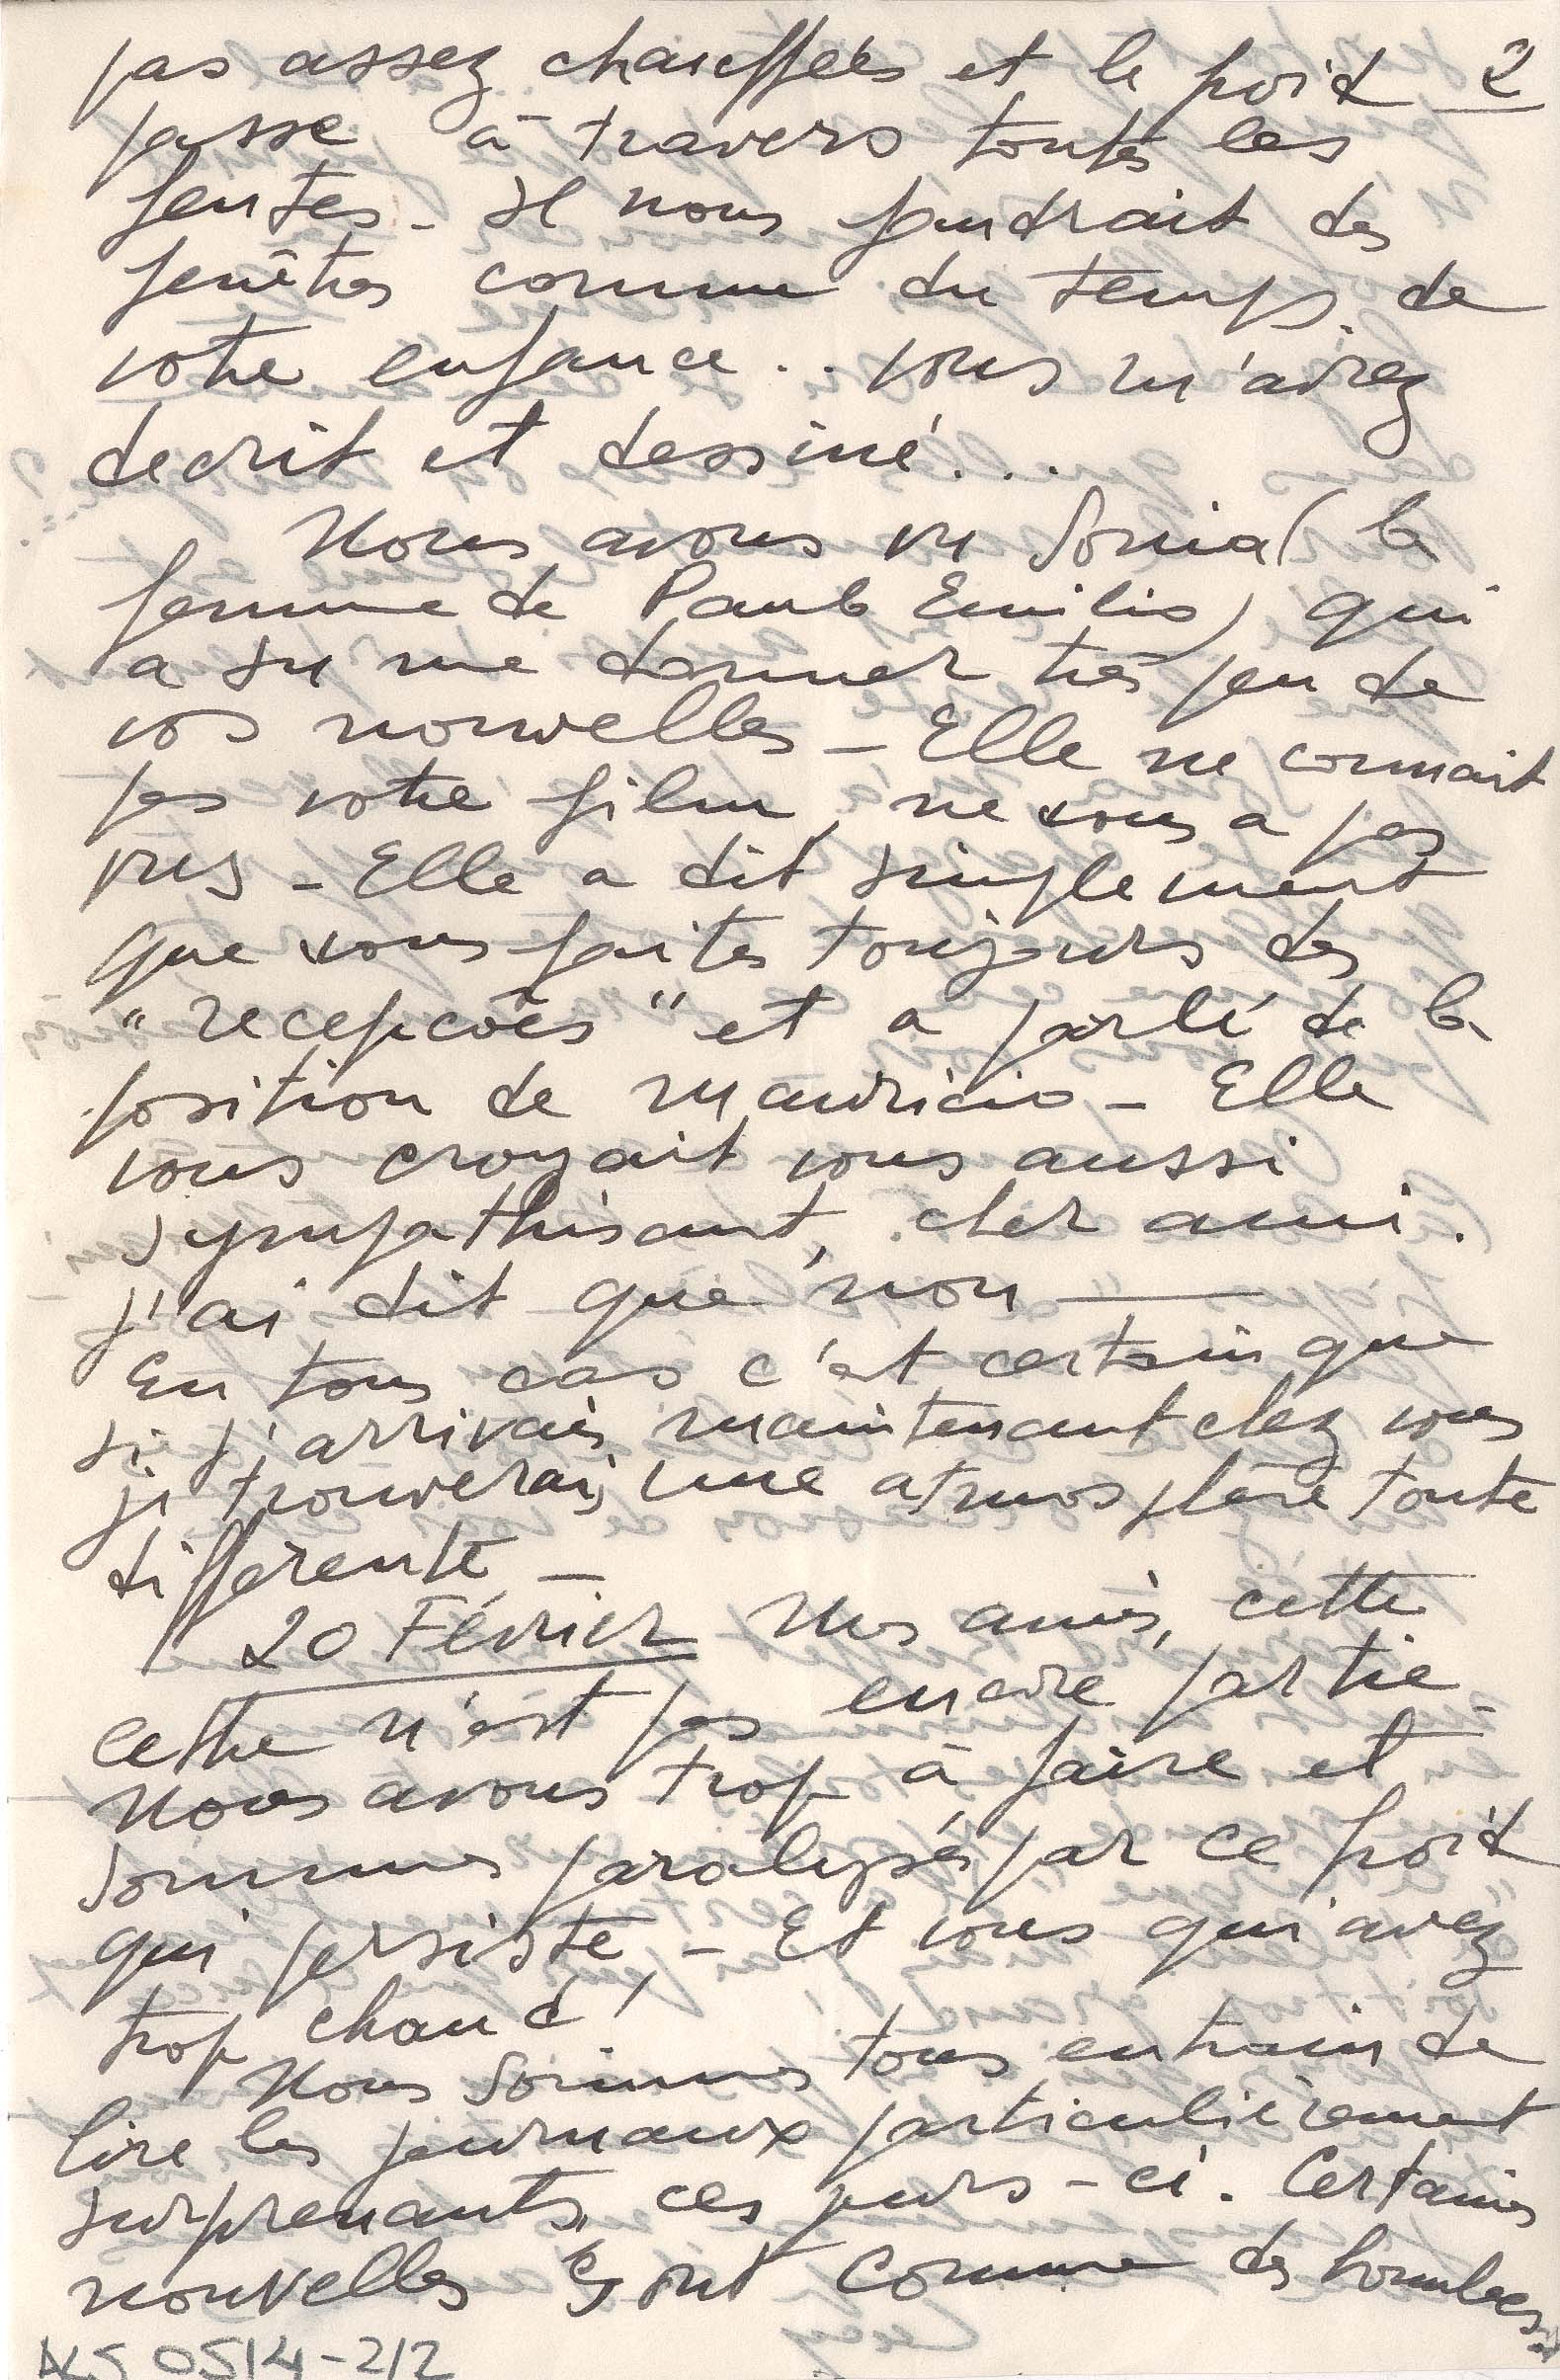 pas assez chauffées et le froid 2
passe à travers toutes les
fentes - Il nous faudrait des
fenêtres comme du temps de
votre enfance .. vous m'aviez
decrit et dessiné ...
Nous avons vu Sonia ( la
femme de Paulo Emilio) qui
a su me donner très peu de
vos nouvelles - Elle ne connait
pas votre film, ne vous a pas
vus - Elle a dit simplement
que vous faites toujours des
"recepcões" et a parlé de la
position de Mauricio - Elle
vous croyait vous aussi
sympathisant, cher ami.
j'ai dit que non —
En tous cas c'est certain que
si j'arrivais maintenant chez vous
je trouverais une atmosphère toute
differente -
20 Février Mes amis, cette
lettre n'est pas encore partie -
Nous avons trop à faire et
sommes paralysés par ce froid
qui persiste, - Et vous qui avez
trop chaud !
Nous sommes tous entrain de
lire les journaux particulièrement
surprenants, ces jours-ci. Certaines
nouvelles sont comme des bombes
ALS 0514-2/2